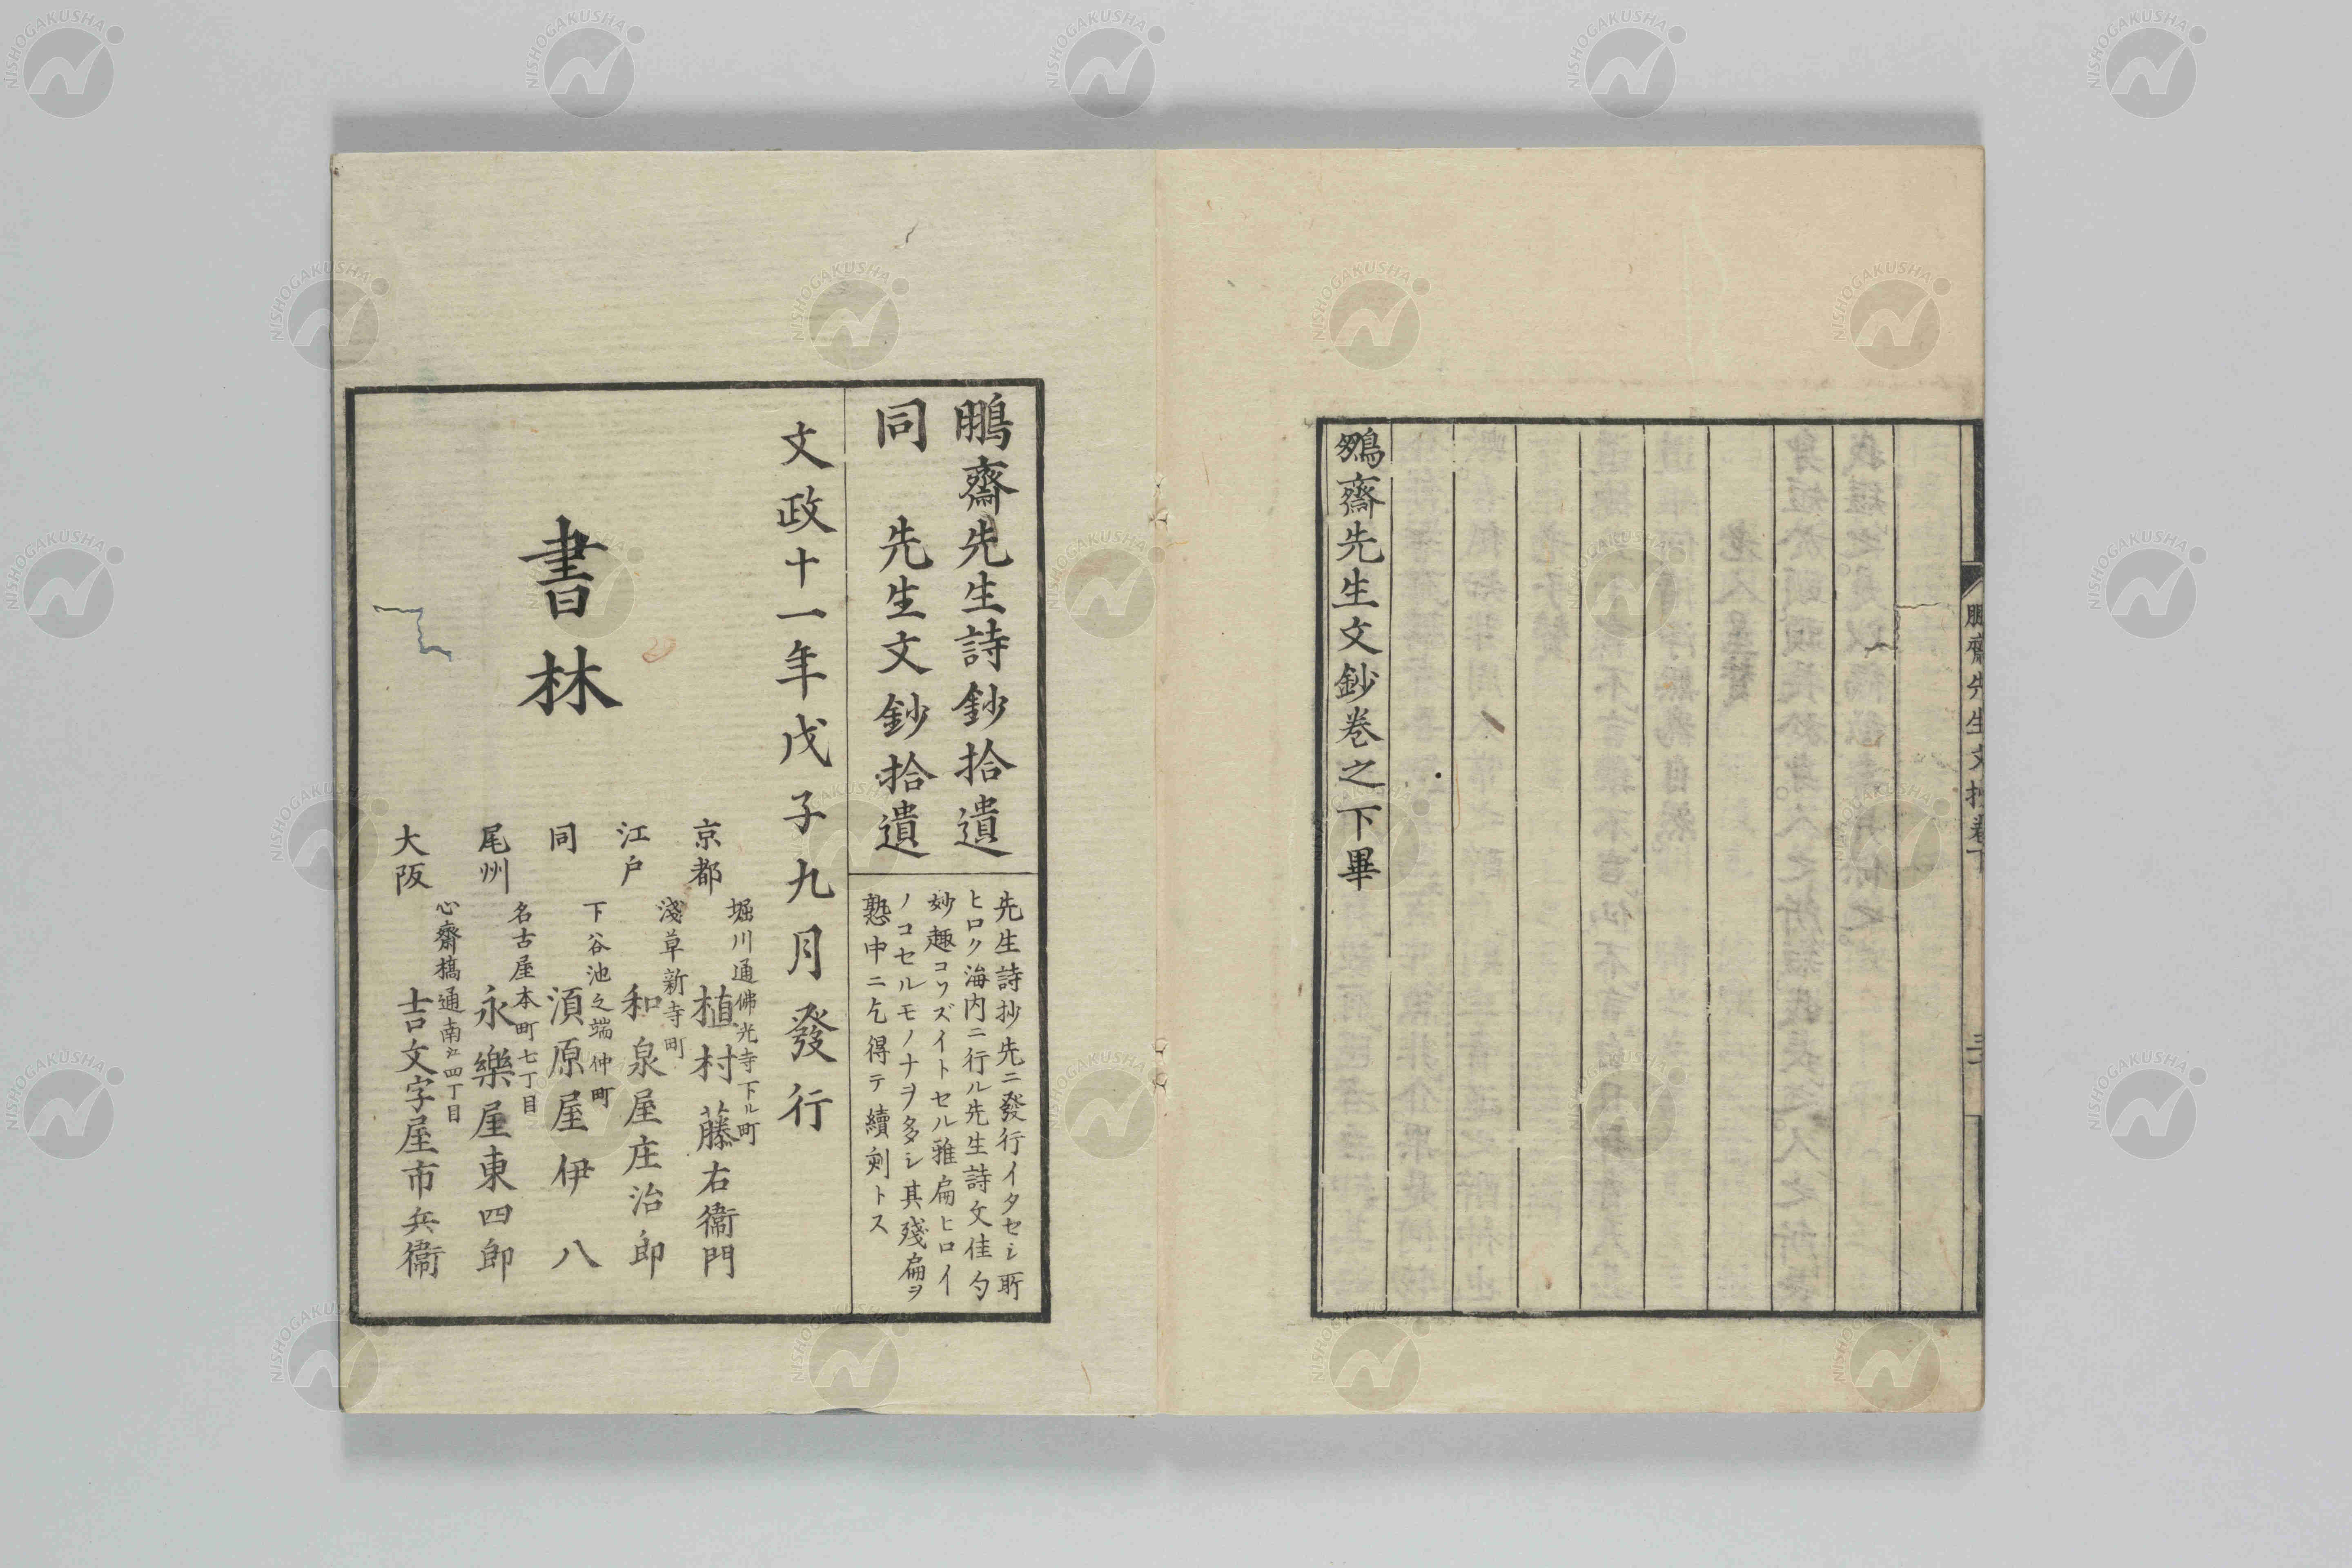 鵬齋先生文鈔卷之下畢
鵬齋先生文抄卷下
鵬齋先生詩鈔拾遺
同 先生文鈔拾遺
先生詩抄先ニ發行イタセシ所
ヒロク海内ニ行ル先生詩文佳勺
妙趣コワズイトセル雅扁ヒロイ
ノコセルモノナヲ多シ其殘扁ヲ
熟中ニ乞得テ續刻トス
文政十一年戊子九月發行
書林
京都 堀川通佛光寺下ル町 植村藤右衞門
江戸 淺草新寺町 和泉屋庄治郎
同 下谷池之端仲町 須原屋伊八
尾州 名古屋本町七丁目 永樂屋東四郎
大阪 心齋橋通南江四丁目 吉文字屋市兵衞
NISHOGAKUSHA